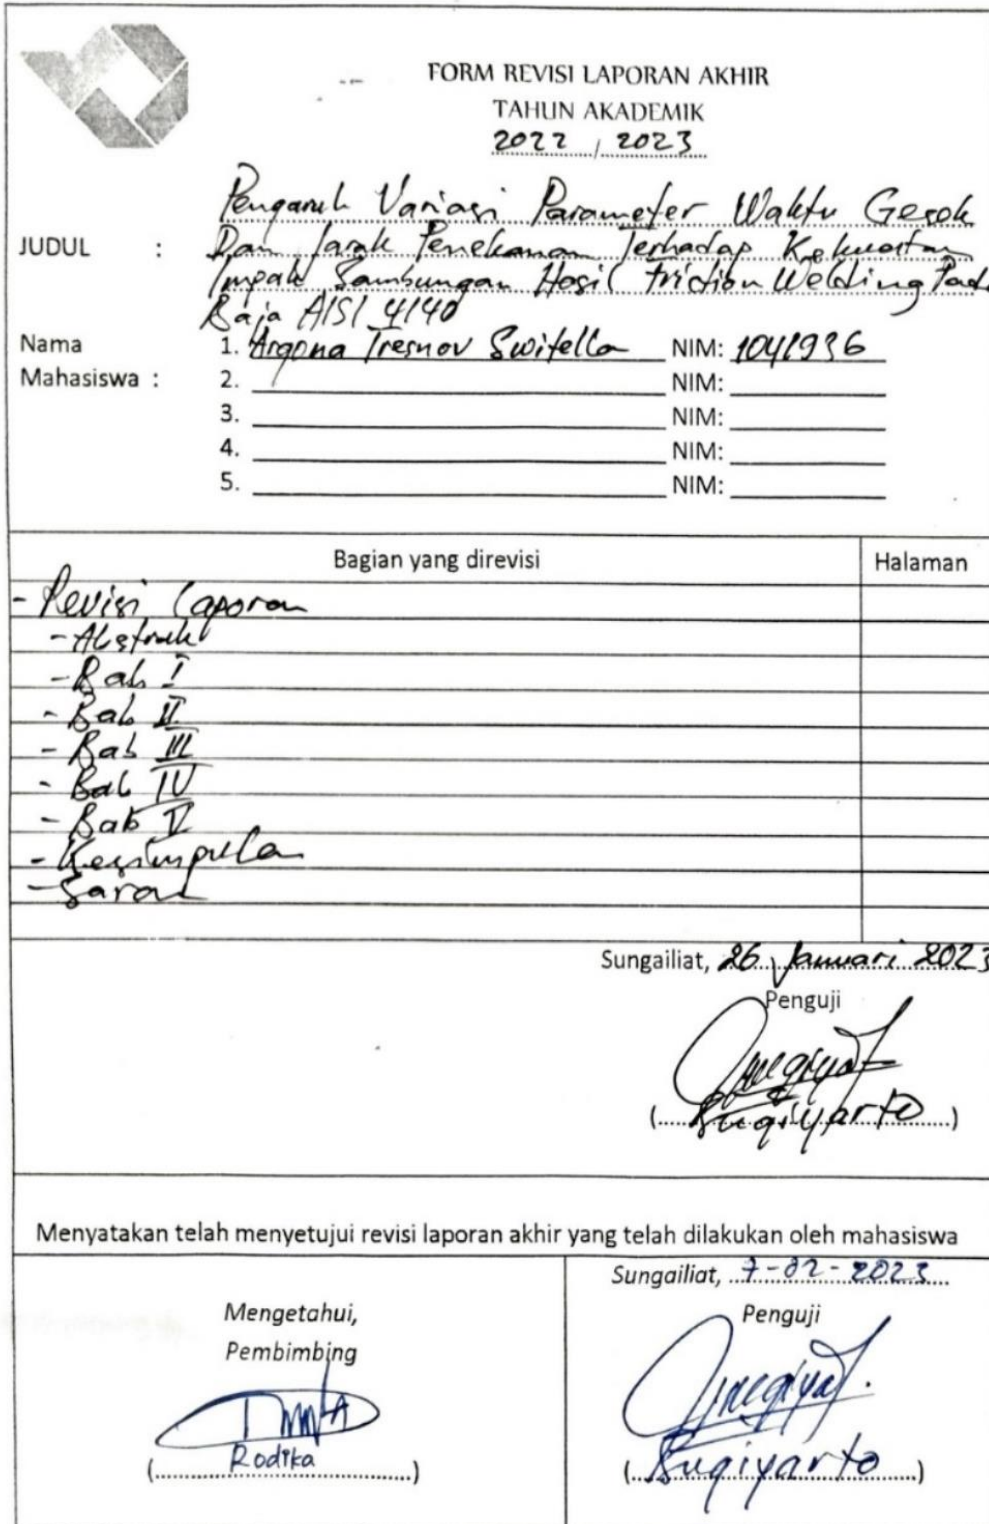 FORM REVISI LAPORAN AKHIR
TAHUN AKADEMIK
2022 / 2023
JUDUL : Pengaruh Variasi Parameter Waktu Gesek
Dan Jarak Penekanan Terhadap Kekuatan
Impak Sambungan Hasil Friction Welding Pada
Baja AISI 4140
Nama
Mahasiswa :
1. Argona Tresnov Switella NIM: 1041936
2. NIM:
3. NIM:
4. NIM:
5. NIM:
Bagian yang direvisi Halaman
- Revisi Laporan
- Abstrak
- Bab I
- Bab II
- Bab III
- Bab IV
- Bab V
- Kesimpulan
- Saran
Sungailiat, 26 Januari 2023
Penguji
(Sugiyarto)
Menyatakan telah menyetujui revisi laporan akhir yang telah dilakukan oleh mahasiswa
Sungailiat, 7-02-2023
Mengetahui,
Pembimbing
(Rodika)
Penguji
(Sugiyarto)